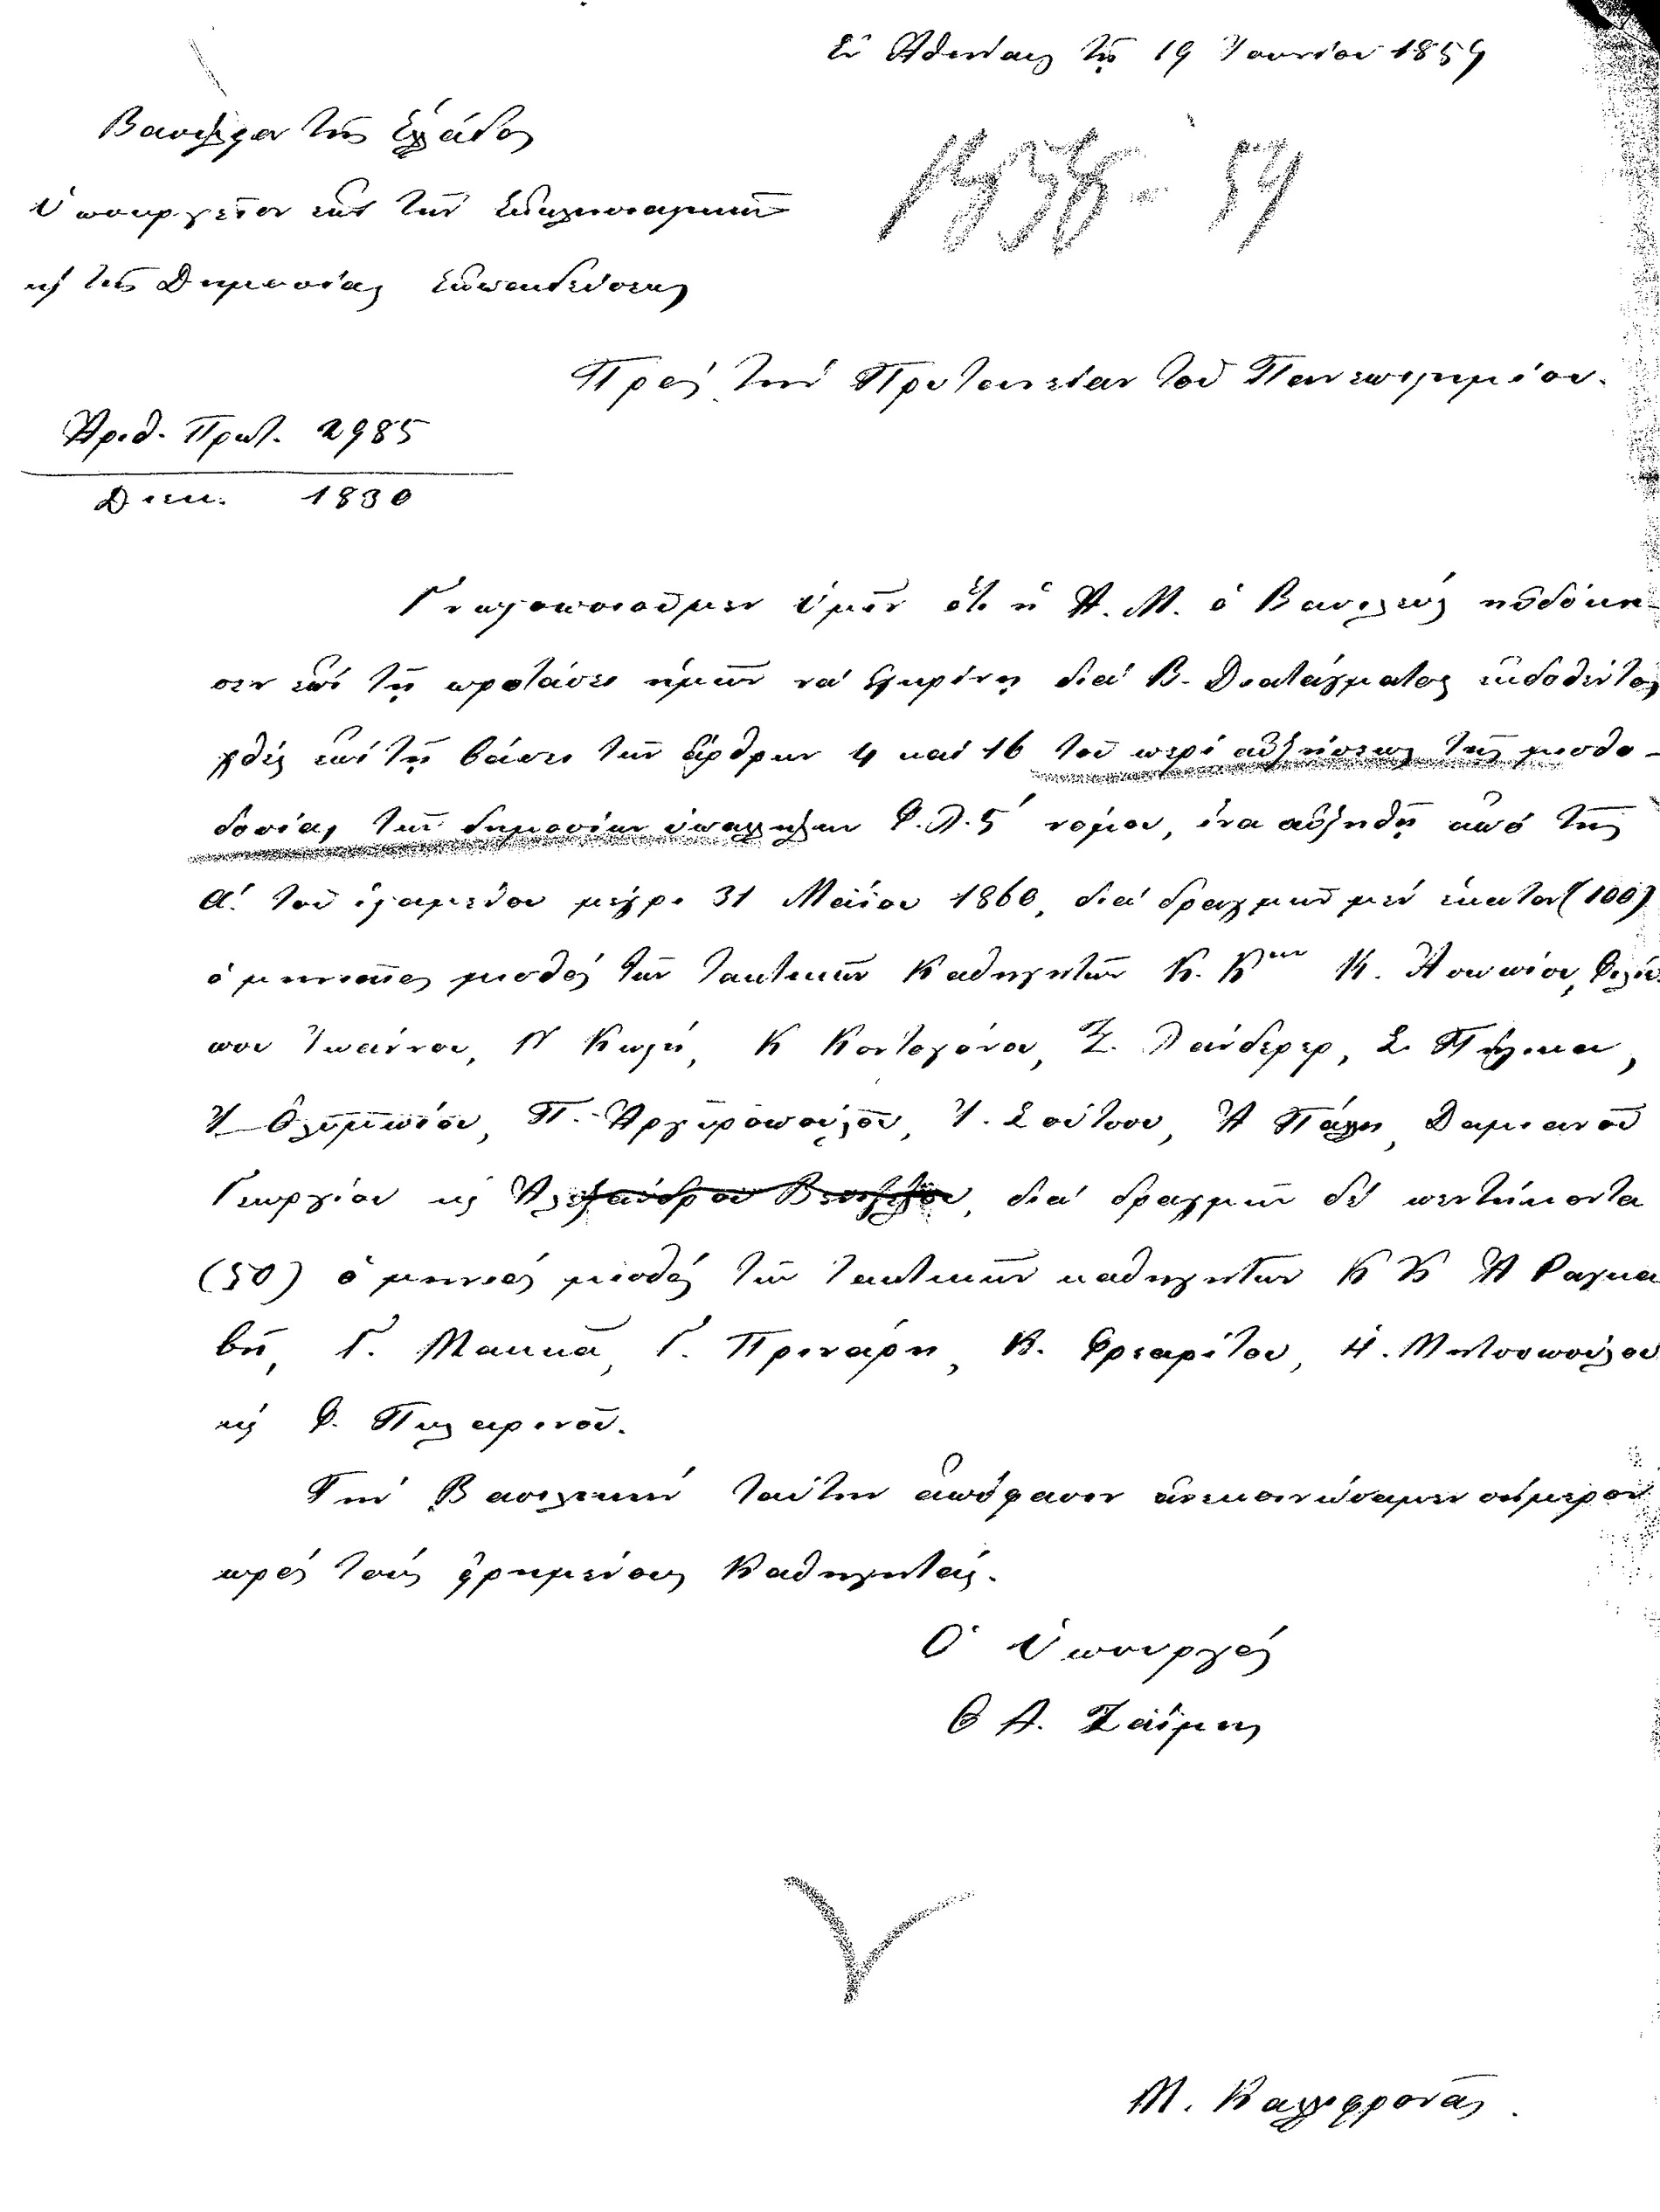 Ἐν Ἀθήναις τῇ 19 Ἰουνίου 1859
Βασίλειον τῆς Ἑλλάδος
1858 - 59
Ὑπουργεῖον ἐπὶ τῶν Ἐκκλησιαστικῶν
κ̀ τῆς Δημοσίας Ἐκπαιδεύσεως
Πρὸς τὴν Πρυτανείαν τοῦ Πανεπιστημίου.
Ἀριθ. Πρωτ. 2985
Διεκ. 1830
Γνωστοποιοῦμεν ὑμῖν ὅτι ἡ Α. Μ. ὁ Βασιλεὺς ηὐδόκη-
σεν ἐπὶ τῇ προτάσει ἡμῶν νὰ ἐγκρίνῃ διὰ Β. Διατάγματος ἐκδοθέντος
χθὲς ἐπὶ τῇ βάσει τῶν ἄρθρων 4 καὶ 16 τοῦ περὶ αὐξήσεως τῆς μισθο-
δοσίας τῶν δημοσίων ὑπαλλήλων Φ.Λ.ς΄ νόμου, ἵνα αὐξηθῇ ἀπὸ τῆς
α΄. τοῦ ἱσταμένου μέχρι 31 Μαΐου 1860, διὰ δραχμῶν μὲν ἑκατὸν (100)
ὁ μηνιαῖος μισθὸς τῶν τακτικῶν Καθηγητῶν Κ. Κων Κ. Ἀσωπίου, Φιλίπ
που Ἰωάννου, Ν Κωστῆ, Κ Κοντογόνου, Ξ. Λάνδερερ, Σ. Πήλικα,
Ἰ Ὀλυμπίου, Π. Ἀργυροπούλου, Ἰ. Σούτσου, Ἀ Πάλλη, Δαμιανοῦ
Γεωργίου κ̀ Ἀλεξάνδρου Βενιζέλου, διὰ δραχμῶν δὲ πεντήκοντα
(50) ὁ μηνιαῖος μισθὸς τῶν τακτικῶν καθηγητῶν Κ Κ Ἀ Ραγκα
βῆ, Γ. Μακκᾶ, Γ. Πρινάρη, Κ. Φρεαρίτου, Ἡ. Μητσοπούλου
κ̀ Θ. Πυλαρινοῦ.
Τὴν Βασιλικὴν ταύτην ἀπόφασιν ἀνεκοινώσαμεν σήμερον
πρὸς τοὺς εἰρημένους Καθηγητάς.
Ὁ Ὑπουργὸς
Θ Α. Ζαΐμης
Μ. Καλλιφρονᾶς